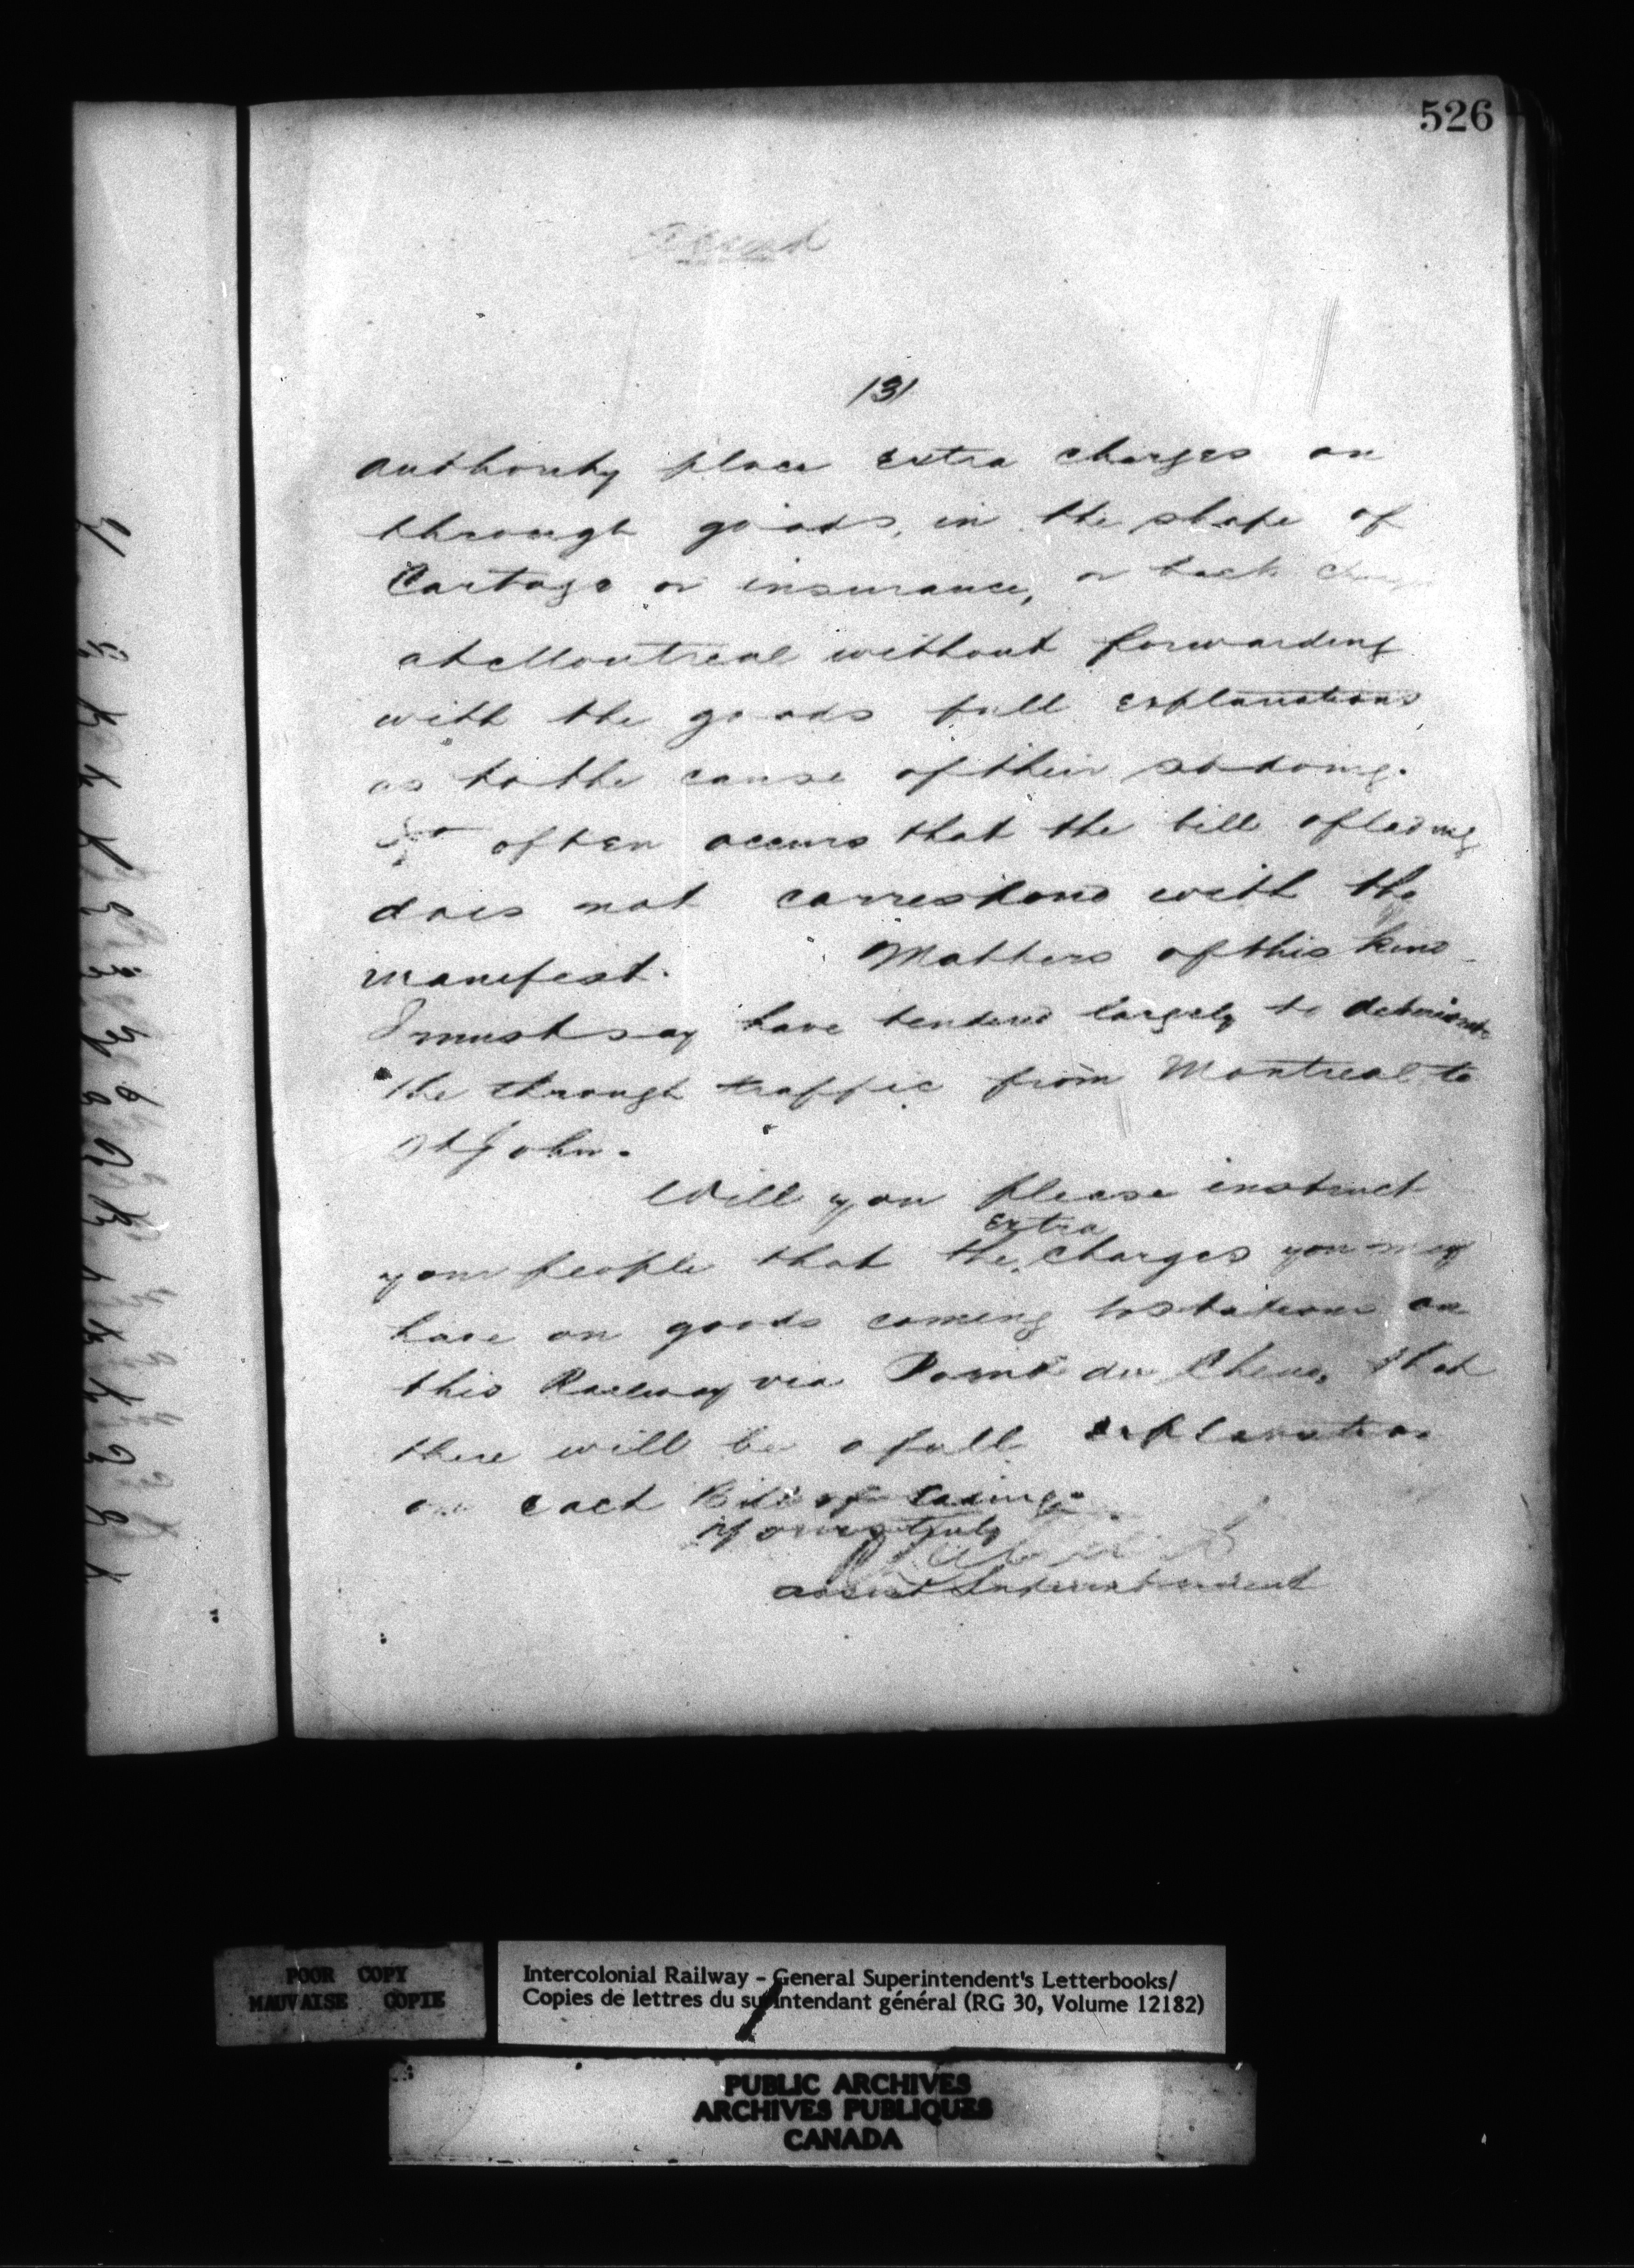 526
131
authority place extra charges on
through goods, in the shape of
Cartage or insurance, or back charges
at Montreal without forwarding
with the goods full explanations
as to the cause of their so doing.
It often occurs that the bill of lading
does not correspond with the
manifest. Matters of this kind
I must say have tended largely to
the through traffic from Montreal to
St John.
Will you please instruct
extra
your people that the charges you may
have on goods coming to stations on
this Railway via Point du Chene, that
there will be a full explanation
on each Bill of Lading.
Yours truly
Assist Superintendent
POOR COPY
MAUVAISE COPIE
Intercolonial Railway - General Superintendent's Letterbooks/
Copies de lettres du surintendant général (RG 30, Volume 12182)
PUBLIC ARCHIVES
ARCHIVES PUBLIQUES
CANADA